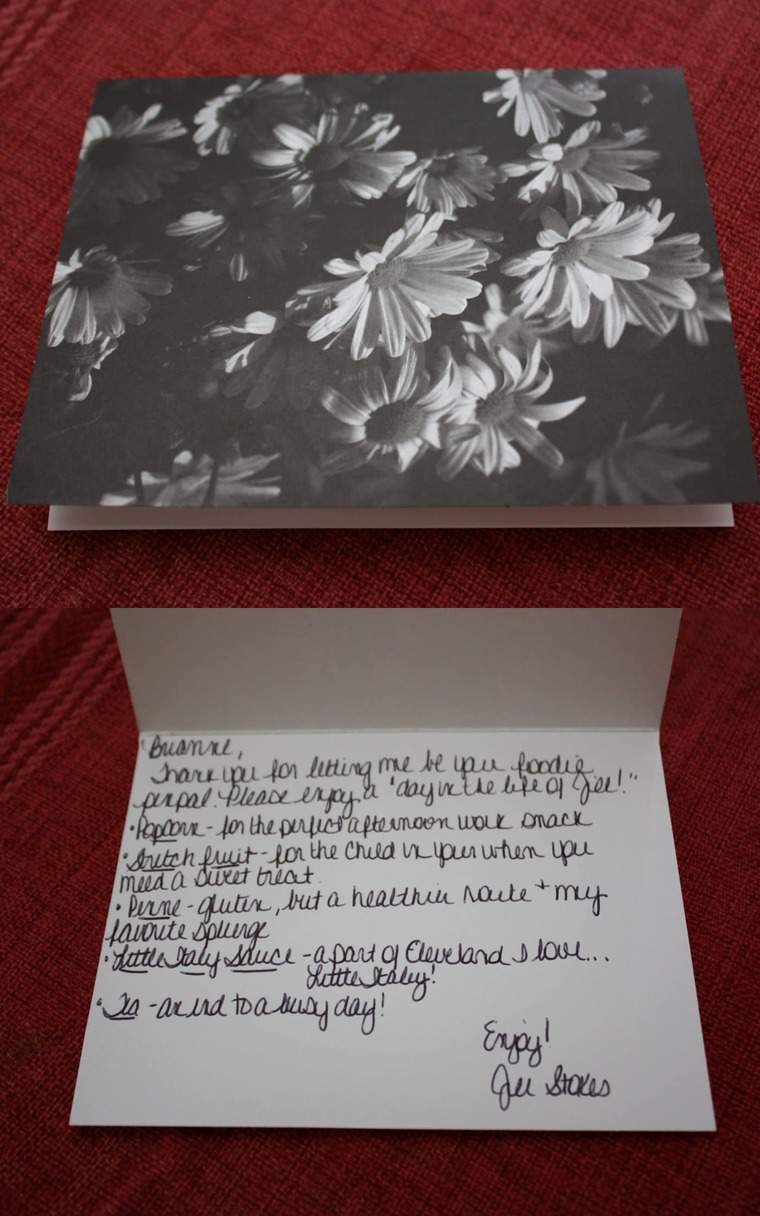 Brianne,
Thank you for letting me be your foodie
penpal. Please enjoy a "day in the life of Jill!"
• Popcorn - for the perfect afternoon work snack
• Stretch fruit - for the child in you when you
need a sweet treat
• Penne - gluten, but a healthier route + my
favorite splurge
• Little Italy Sauce - a part of Cleveland I love...
Little Italy!
• Tea - an end to a busy day!
Enjoy!
Jill Stokes